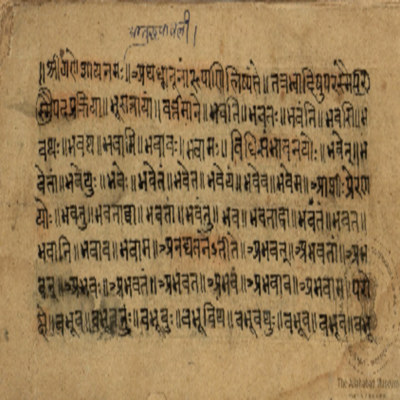 धातुरूपावली।
॥श्रीगणेशायनमः॥अथधातूनांरूपाणिलिख्यंते॥तत्रभ्वादिषुपरस्मैपद
प्रक्रिया॥भूसत्तायां॥वर्त्तमाने॥भवति॥भवतः॥भवंति॥भवसि॥भ
वथः॥भवथ॥भवामि॥भवावः॥भवामः॥विधिसंभावनयोः॥भवेत्॥भ
वेतां॥भवेयुः॥भवेः॥भवेतं॥भवेत॥भवेयं॥भवेव॥भवेम॥आशीःप्रेरण
योः॥भवतु॥भवताद्वा॥भवतां॥भवंतु॥भव॥भवताद्वा॥भवतं॥भवत॥
भवानि॥भवाव॥भवाम॥अनद्यतनेऽतीते॥अभवत्॥अभवतां॥अभ
वन्॥अभवः॥अभवतं॥अभवत॥अभवं॥अभवाव॥अभवाम॥परो
क्षे॥बभूव॥बभूवतुः॥बभूवुः॥बभूविथ॥बभूवथुः॥बभूव॥बभूव॥बभू
The Allahabad Museum